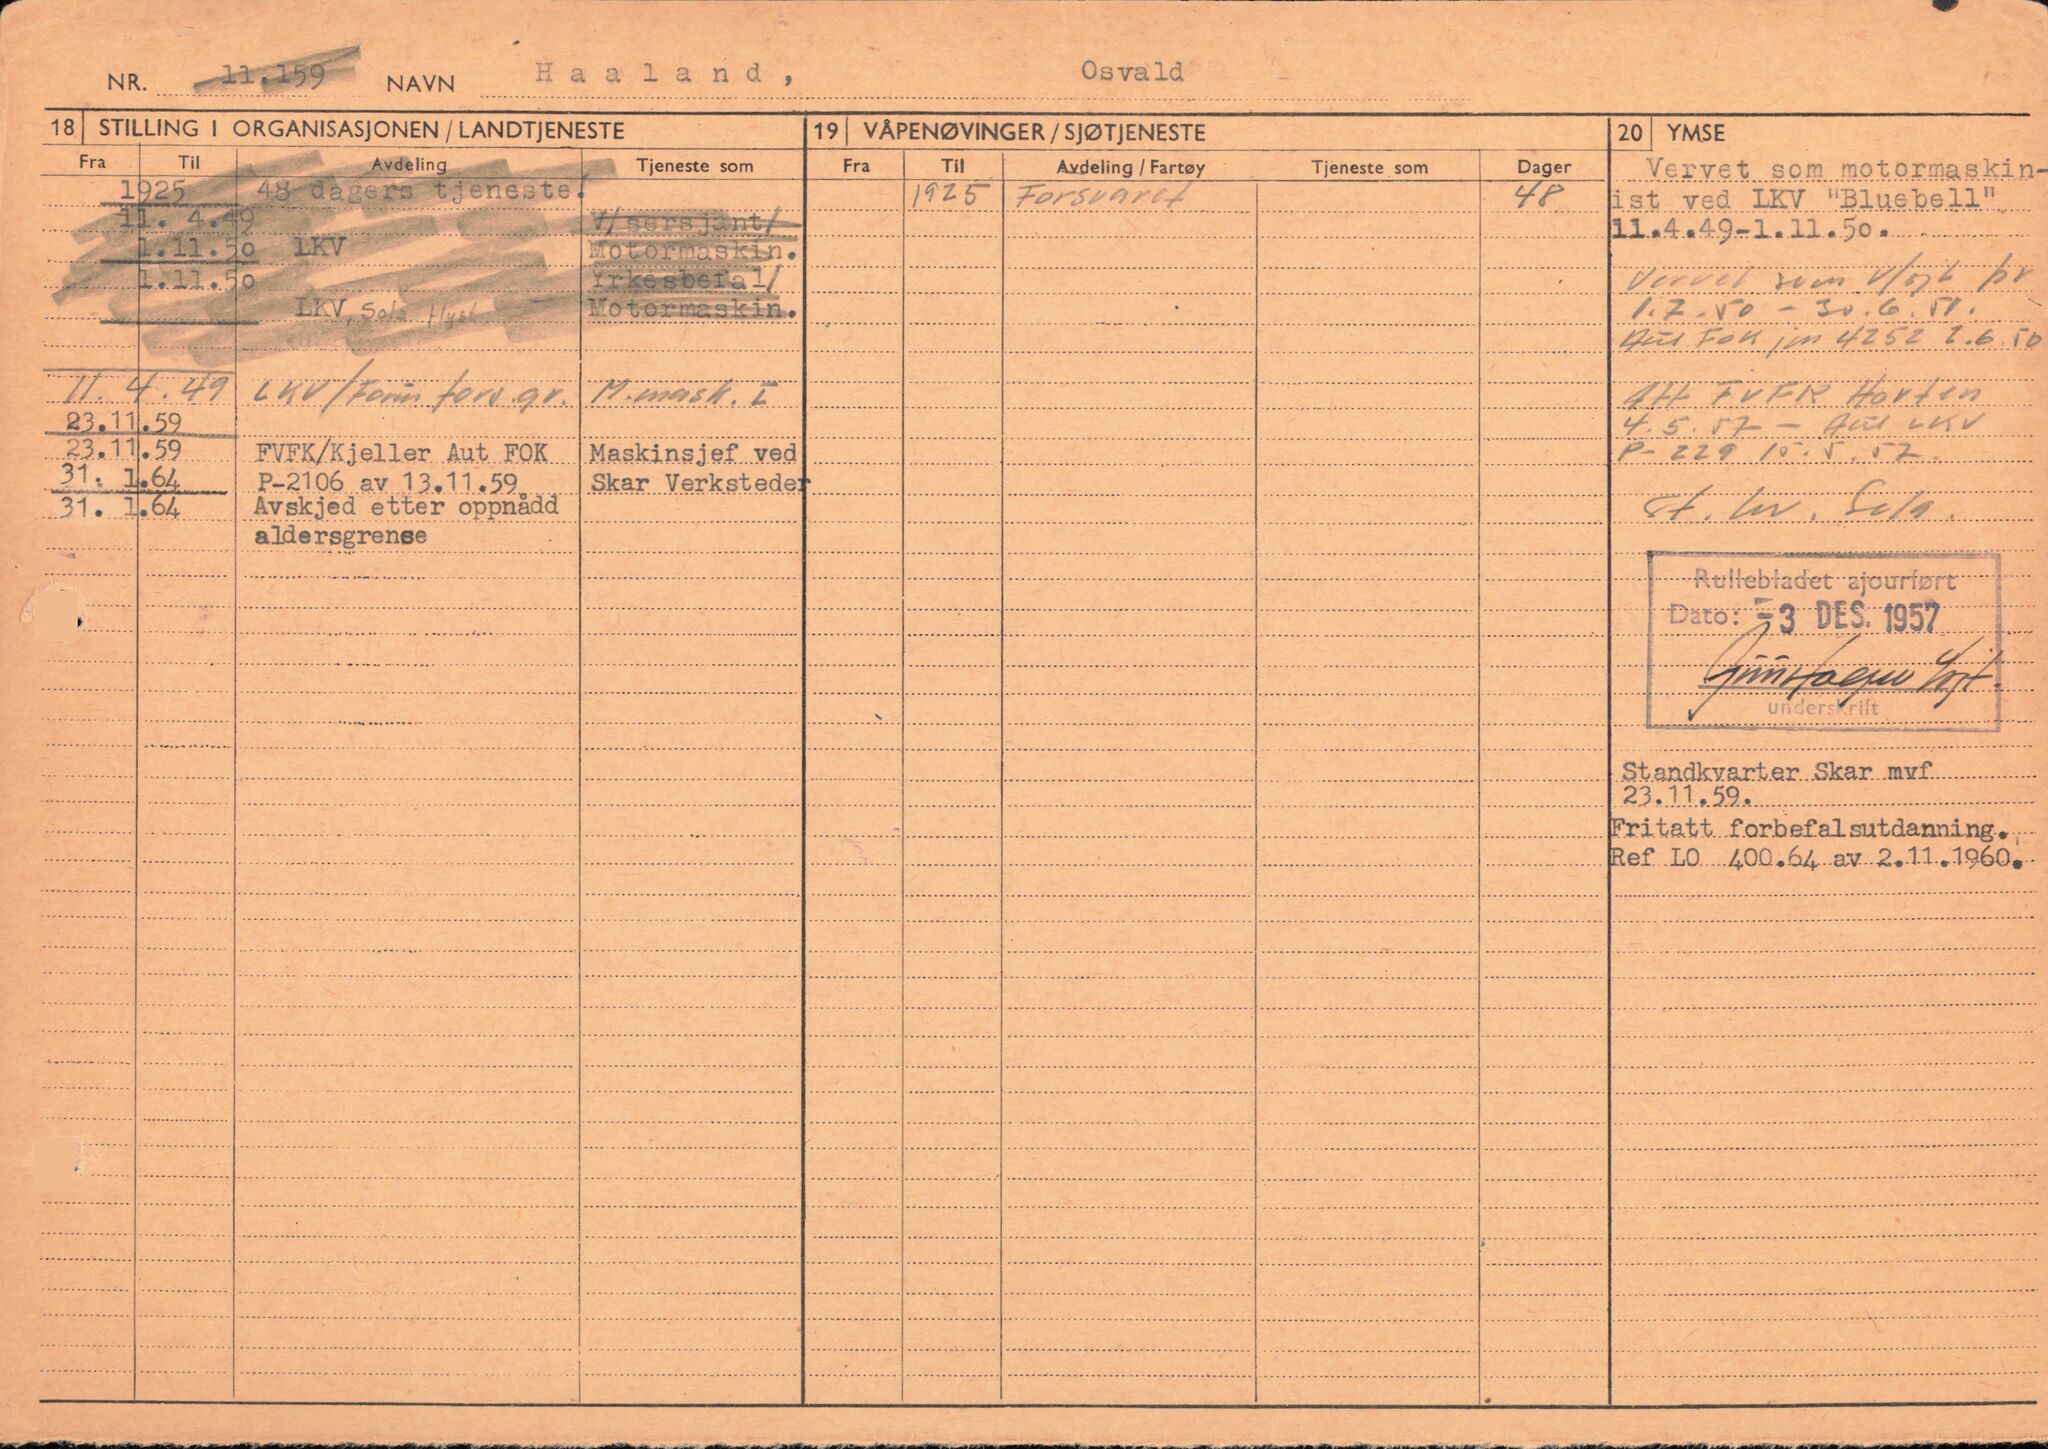 NR. 11.159 NAVN Haaland, Osvald
18 STILLING I ORGANISASJONEN / LANDTJENESTE
Fra Til Avdeling Tjeneste som
1925 48 dagers tjeneste.
11. 4.49 V/sersjant/
1.11.50 LKV Motormaskin.
1.11.50 Yrkesbefal/
LKV, Sola flyst Motormaskin.
11. 4. 49 LKV / M.mask. I
23.11.59
23.11.59 FVFK/Kjeller Aut FOK Maskinsjef ved
31. 1.64 P-2106 av 13.11.59 Skar Verksteder
31. 1.64 Avskjed etter oppnådd
aldersgrense
19 VÅPENØVINGER / SJØTJENESTE
Fra Til Avdeling / Fartøy Tjeneste som Dager
1925 Forsvaret 48
20 YMSE
Vervet som motormaskin-
ist ved LKV "Bluebell"
11.4.49-1.11.50.
Vervet som
1.7.50 - 30.6.51.
Aut FOK jnr 4252 2.6.50
Att FVFK Horten
4.5.57 - Aut LKV
P-229 15.5.57.
Sola.
Rullebladet ajourført
Dato: -3 DES. 1957
underskrift
Standkvarter Skar mvf
23.11.59.
Fritatt forbefalsutdanning.
Ref LO 400.64 av 2.11.1960.